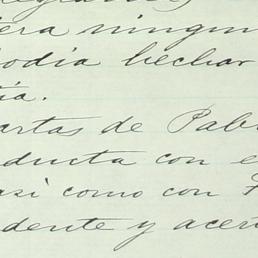 era ningun
odia hechar
tia.
artas de Pabl
ducta con e
asi como con F
dente y acer